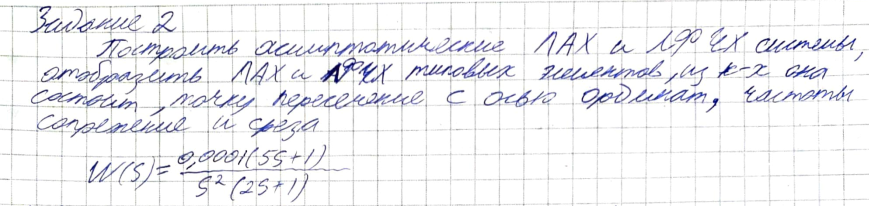 Задание 2
Построить асимптотические ЛАХ и ЛФЧХ системы,
отобразить ЛАХ и ЛФЧХ типовых элементов, из к-х она
состоит, точку пересечение с осью ординат, частоты
сопряжение и среза
W(S) = 0,0001(5S+1) / S²(2S+1)